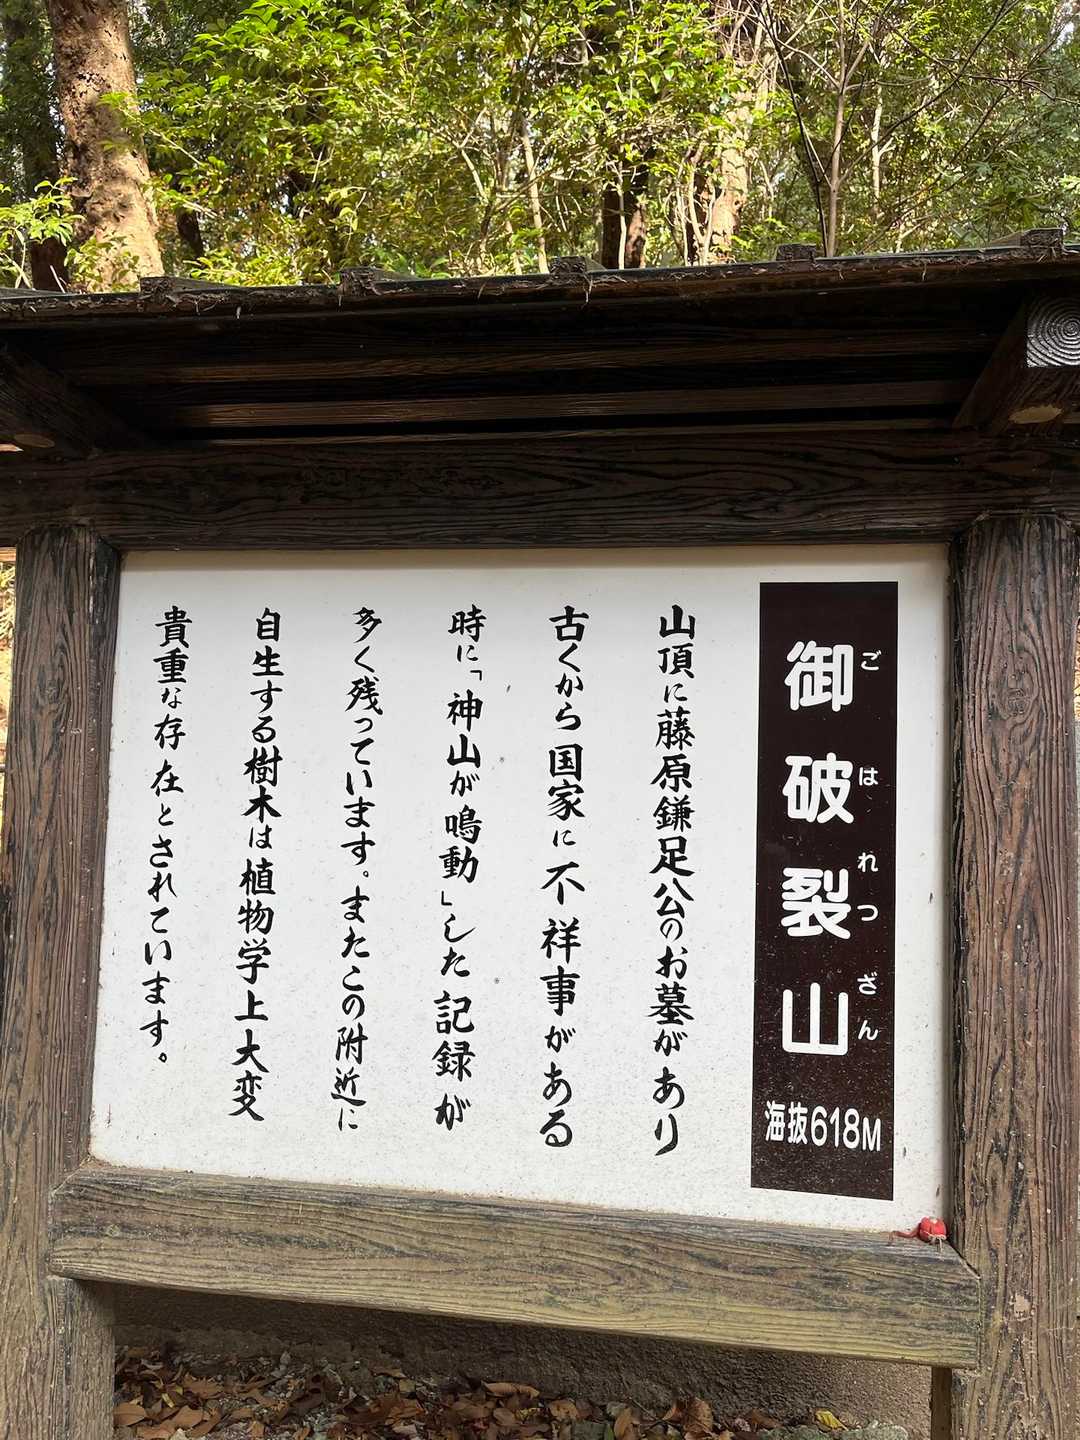 御破裂山
ごはれつざん
海抜618M
山頂に藤原鎌足公のお墓があり
古くから国家に不祥事がある
時に「神山が鳴動」した記録が
多く残っています。またこの附近に
自生する樹木は植物学上大変
貴重な存在とされています。